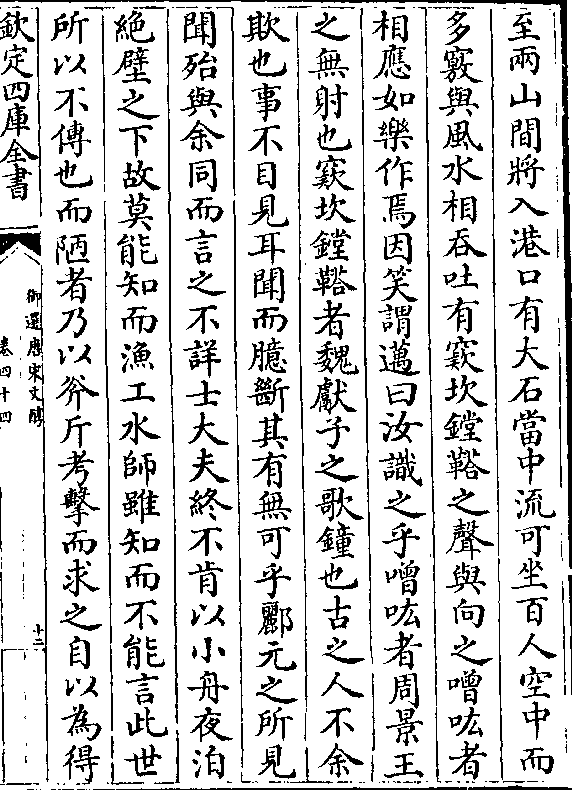 至兩山間將入港口有大石當中流可坐百人空中而
多竅與風水相吞吐有窾坎鏜鞳之聲與向之噌吰者
相應如樂作焉因笑謂邁曰汝識之乎噌吰者周景王
之無射也窾坎鏜鞳者魏獻子之歌鐘也古之人不余
欺也事不目見耳聞而臆斷其有無可乎酈元之所見
聞殆與余同而言之不詳士大夫終不肯以小舟夜泊
絶壁之下故莫能知而漁工水師雖知而不能言此世
所以不傳也而陋者乃以斧斤考擊而求之自以為得
欽定四庫全書
御選唐宋文醇
卷四十四
十二